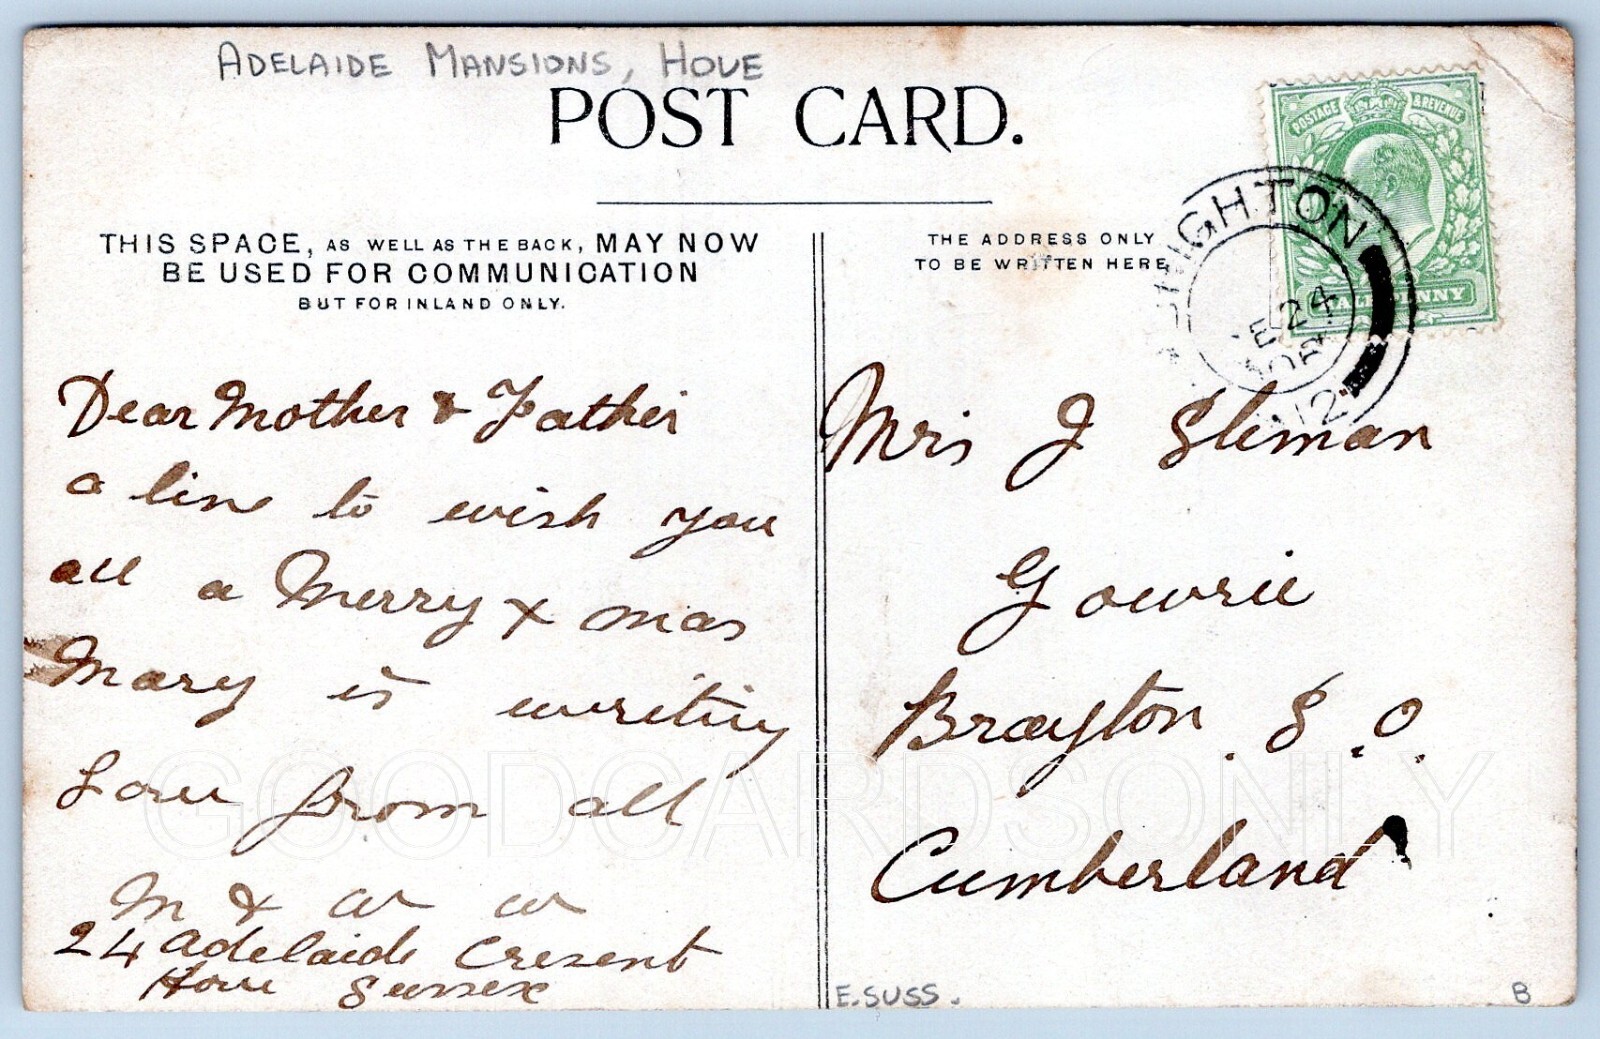 ADELAIDE MANSIONS, HOVE
POST CARD.
POSTAGE & REVENUE
HALFPENNY
BRIGHTON
DE 24
08
112
THIS SPACE, AS WELL AS THE BACK, MAY NOW
BE USED FOR COMMUNICATION
BUT FOR INLAND ONLY.
THE ADDRESS ONLY
TO BE WRITTEN HERE
Dear Mother & Father
a line to wish you
all a Merry X mas
Mary is writing
Love from all
M & W W
24 Adelaide Cresent
Hove Sussex
Mrs J Sleman
Gowrie
Brayton S.O.
Cumberland
GOODCARDSONLY
E. SUSS.
B